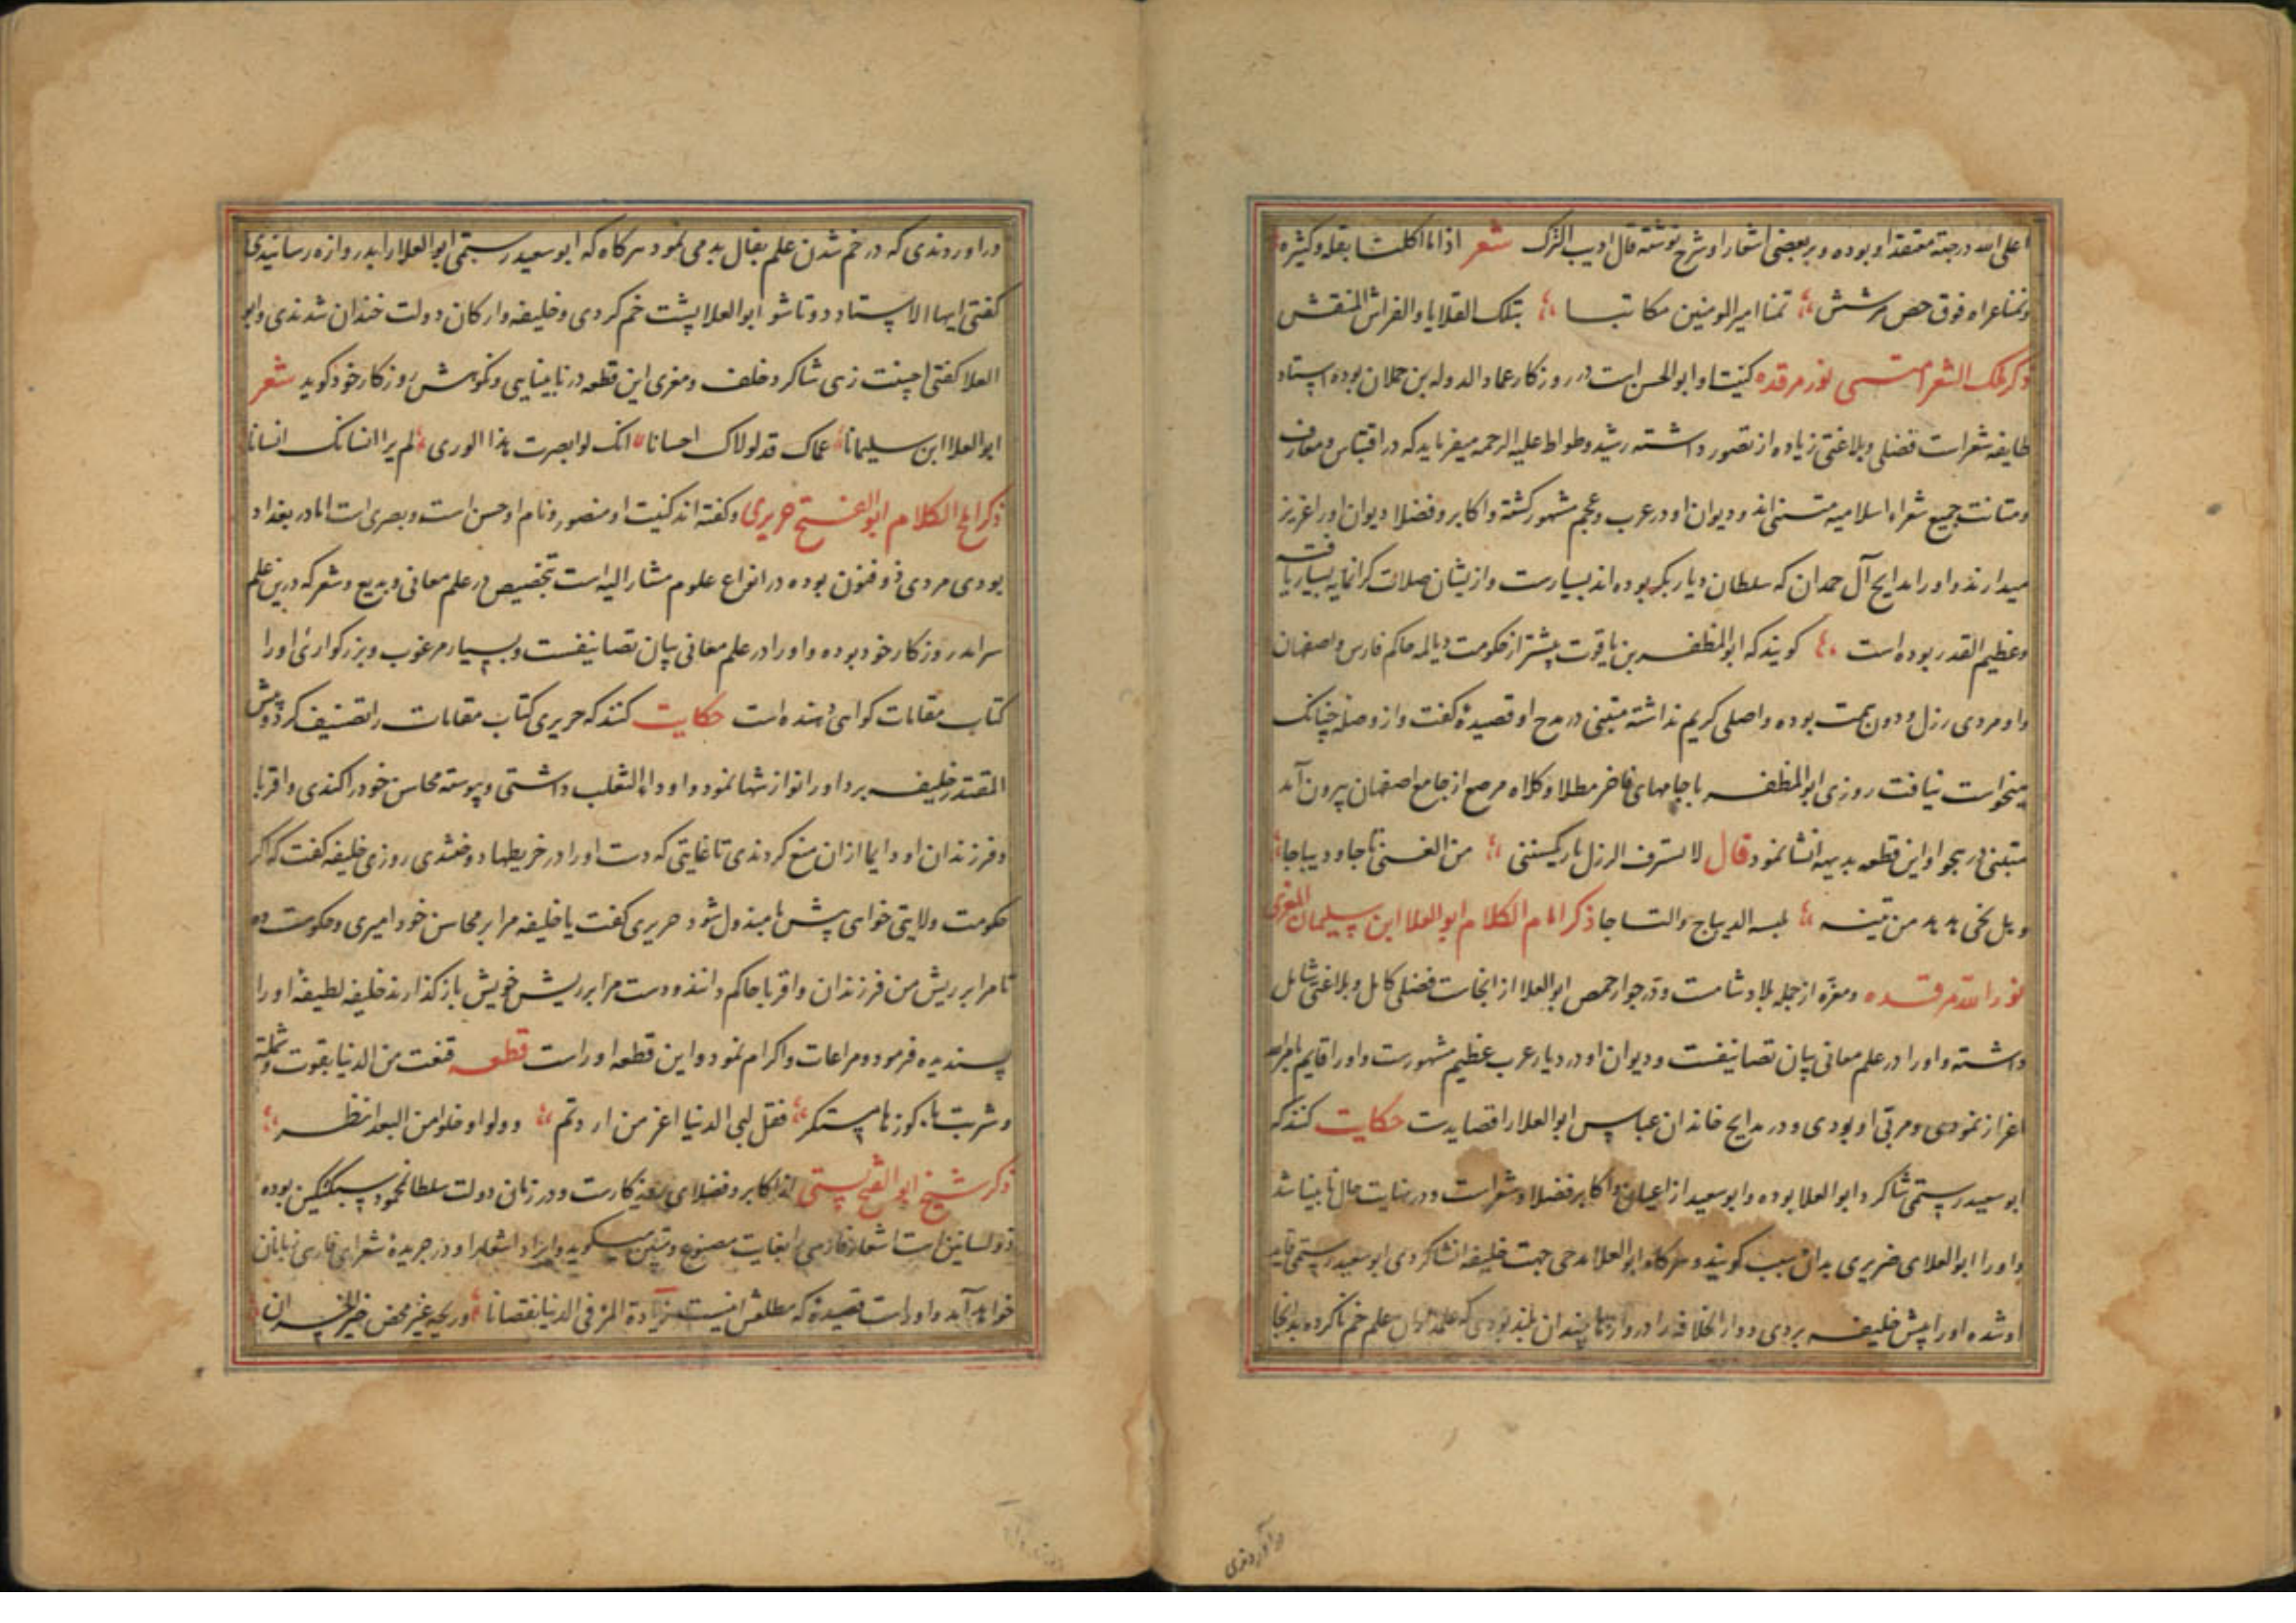 اعلی الله درجته معتقد او بوده و بر بعضی اشعار او شرح نوشته قال ادیب الترک شعر اذا ما اکلت بقله و کثیره
فوق حص تمنا امیر المومنین مکا تبا بتلک القلایا والفراش المنقش
ذکر ملک الشعرا متنبی نور مرقده کنیت او ابو الحسن است در روزکار عماد الدوله بن حملان بوده استاد
طایفه شعراست فضلی و بلاغتی زیاده از تصور داشته رشید وطواط علیه الرحمه میفرماید که در اقتباس و معارف
و متانت جمیع شعراء اسلامیه متنبی اند و دیوان او در عرب و عجم مشهور کشته و اکابر و فضلا دیوان او را عزیز
میدارند و او را مدایح آل حمدان که سلطان دیار بکر بوده اند بسیارست و از یشان صلات کرانمایه بسیار یافت
و عظیم القدر بوده است کویند که ابو المظفر بن یاقوت پیشتر از حکومت دیالمه حاکم فارس و اصفهان
و او مردی رزل و دون همت بوده و اصلی کریم نداشته متنبی در مدح او قصیدۀ کفت و ازو صله چنانک
میخواست نیافت روزی ابو المظفر با جامهای فاخر مطلا و کلاه مرصع از جامع اصفهان بیرون آمد
متنبی در هجو او این قطعه بدیهه انشا نمود قال لا لسترف الرزل من الغنی تاجا و دیباجا
من لبسه الدیباج والتا جا ذکر امام الکلام ابو العلا ابن سلیمان المعری
نور الله مرقده و معره از جمله بلاد شامست و در جوار حمص ابو العلا از انجاست فضلی کامل و بلاغتی شامل
داشته و او را در علم معانی بیان تصانیفست و دیوان او در دیار عرب عظیم مشهورست و او را قایم بامر الله
اعزاز نمودی و مربّی او بودی و در مدایح خاندان عباس ابو العلا را قصایدست حکایت کنند که
ابو سعید رستمی شاکرد ابو العلا بوده و ابو سعید از اعیان و اکابر فضلا و شعراست و در نهایت حال نابینا شد
و او را ابو العلای ضریری بدان سبب کویند و هرکاه ابو العلا مدحی جهت خلیفه انشا کردی ابو سعید رستمی قاید
او شده او را پیش خلیفه بردی و دار الخلافه را دروازها چندان بلند بودی که علم خم ناکرده بدانجا
در آوردندی
در اوردندی که در خم شدن علم بفال بد می نمود هرکاه که ابو سعید رستمی ابو العلا را بدروازه رسانیدی
کفتی ایها الاستاد دوتا شو ابو العلا پشت خم کردی و خلیفه و ارکان دولت خندان شدندی و ابو
العلا کفتی احسنت زهی شاکرد خلف و معری این قطعه در نابینایی و نکوهش روزکار خود کوید شعر
ابو العلا ابن سلیمانا عماک قد لولاک احسانا انک لو ابصرت هذا الوری لم یر انسانک انسانا
ذکر املح الکلام ابو الفتح حریری و کفته اند کنیت او منصور و نام او حسن است و بصری است اما در بغداد
بودی مردی ذو فنون بوده در انواع علوم مشار الیه است بتخصیص در علم معانی و بدیع و شعر که درین علم
سرامد روزکار خود بوده و او را در علم معانی بیان تصانیفست و بسیار مرغوب و بزرکواری او را
کتاب مقامات کواهی دهنده است حکایت کنند که حریری کتاب مقامات را تصنیف کرد و پیش
المقتدر خلیفه برد او را نوازشها نمود و او داء الثعلب داشتی و پیوسته محاسن خود را کندی و اقربا
و فرزندان او دایما ازان منع کردندی تا غایتی که دست او را در خریطها دوختندی روزی خلیفه کفت که اکر
حکومت ولایتی خواهی پیش ما مبذول شود حریری کفت یا خلیفه مرا بر محاسن خود امیری و حکومت ده
تا مرا بر ریش من فرزندان و اقربا حاکم دانند و دست مرا بر ریش خویش باز کذارند خلیفه لطیفه او را
پسندیده فرمود و مراعات و اکرام نمود و این قطعه او راست قطعه قنعت من الدنیا بقوت و شملة
و شربت با کوزها متکسر فقل لبنی الدنیا اعز من اردتم و ولوا و خلوا من البعد انظر
ذکر شیخ ابو الفتح بستی از اکابر و فضلای روزکارست و در زمان دولت سلطان محمود سبکتکین بوده
ذو لسانین است اشعار فارسی را بغایت مصنوع و متین میکوید و ایراد اشعار او در جریدۀ شعرای فارسی زبانان
خواهد آمد و او راست قصیدۀ که مطلعش اینست زیادة المرء فی الدنیا نقصانا و ربحه غیر محض خیر الخسران